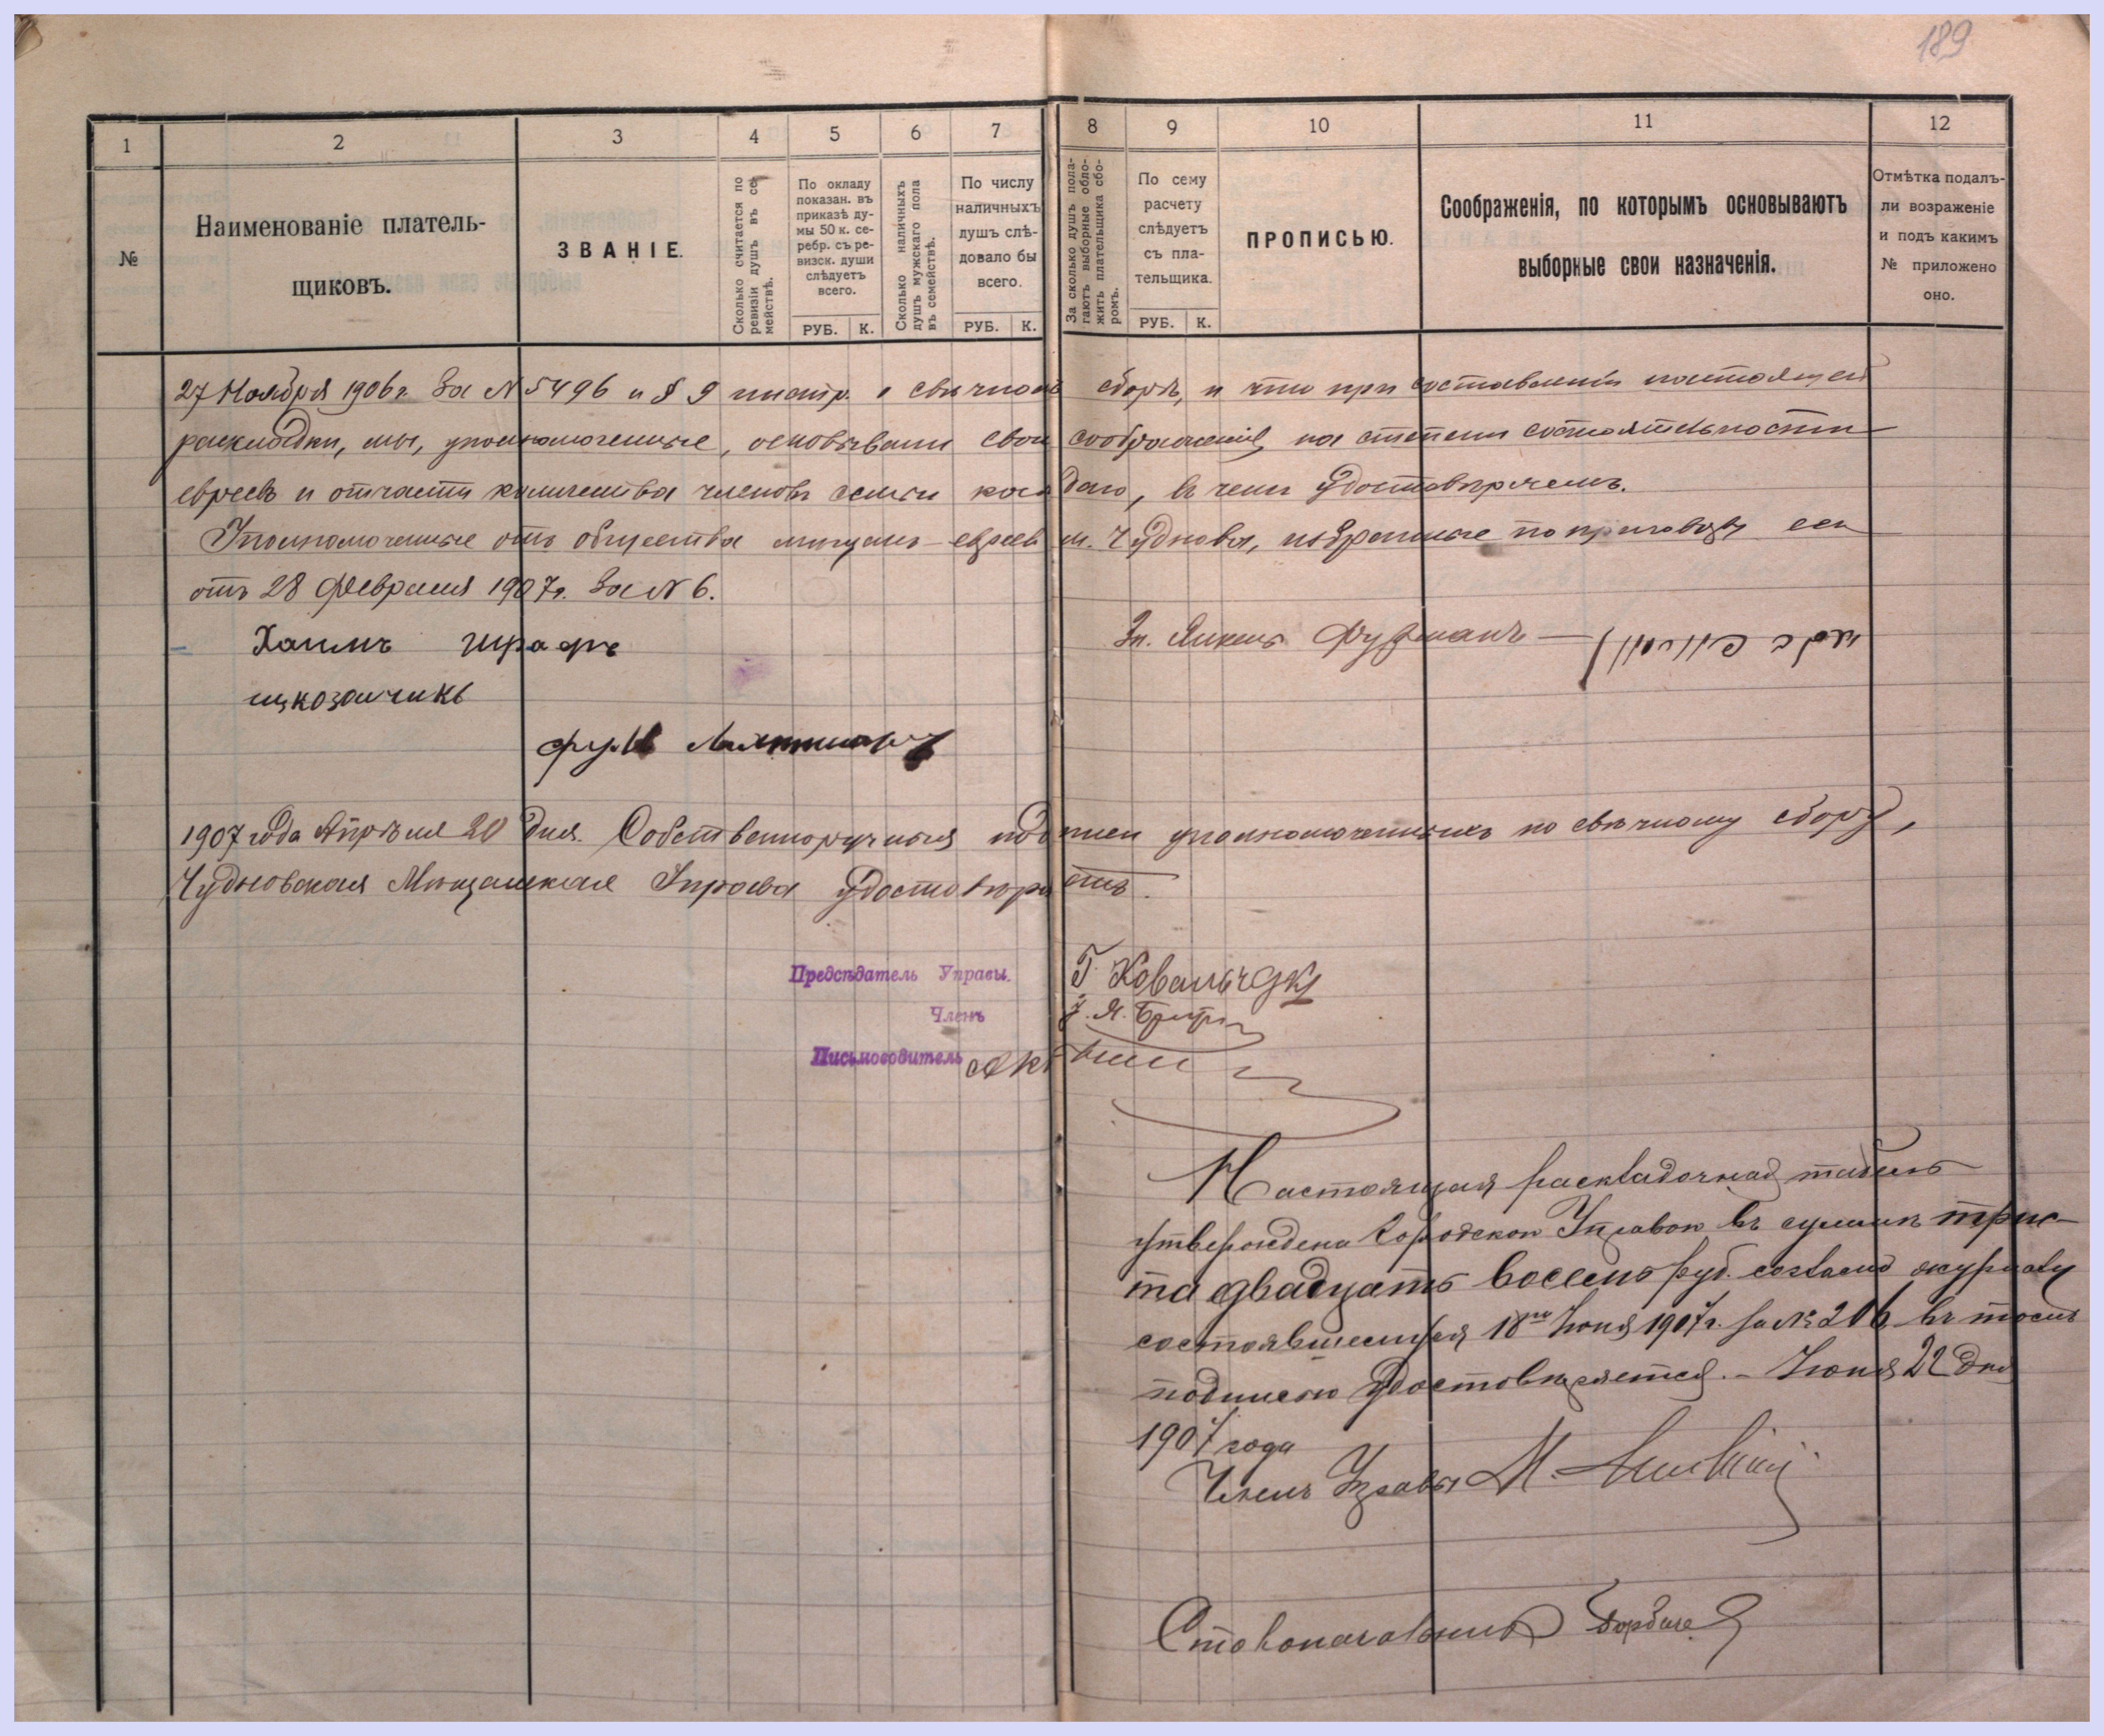 189
1 2 3 4 5 6 7 8 9 10 11 12
№
Наименованіе платель-
щиковъ.
ЗВАНІЕ.
Сколько считается по
ревизіи душъ въ се-
мействѣ.
По окладу
показан. въ
приказѣ ду-
мы 50 к. се-
ребр. съ ре-
визск. души
слѣдуетъ
всего.
РУБ. К.
Сколько наличныхъ
душъ мужскаго пола
въ семействѣ.
По числу
наличныхъ
душъ слѣ-
довало бы
всего.
РУБ. К.
За сколько душъ пола-
гаютъ выборные обло-
жить плательщика сбо-
ромъ.
По сему
расчету
слѣдуетъ
съ пла-
тельщика.
РУБ. К.
ПРОПИСЬЮ.
Соображенія, по которымъ основываютъ
выборные свои назначенія.
Отмѣтка подалъ-
ли возраженіе
и подъ какимъ
№ приложено
оно.
27 Ноября 1906 г. за N 5496 и § 9 инстр. о свѣчномъ сборѣ, и что при составленіи настоящей
раскладки, мы, уполномоченные, основывали свои соображенія на степени состоятельности
евреевъ и отчасти количества членовъ семьи каждаго, въ чемъ удостовѣряемъ.
Уполномоченные отъ общества мѣщанъ-евреевъ м. Чуднова, избранные по приговору его
отъ 28 февраля 1907 г. за N 6.
Хаимъ Шрафъ
Зп. Янкель Фурманъ
1907 года Апрѣля 20 дня. Собственноручныя подписи уполномоченныхъ по свѣчному сбору,
Чудновская Мѣщанская Управа удостовѣряетъ.
Предсѣдатель Управы. Г. Ковальчукъ
Членъ
Письмоводитель
Настоящая раскладочная табель
утверждена Городской Управой въ суммѣ трис-
та двадцать восемь руб. согласно журналу
состоявшемуся 18го Іюня 1907 г. за № 206 въ томъ
подписью удостовѣряется. – Іюня 22 дня
1907 года
Членъ Управы М.
Столоначальникъ